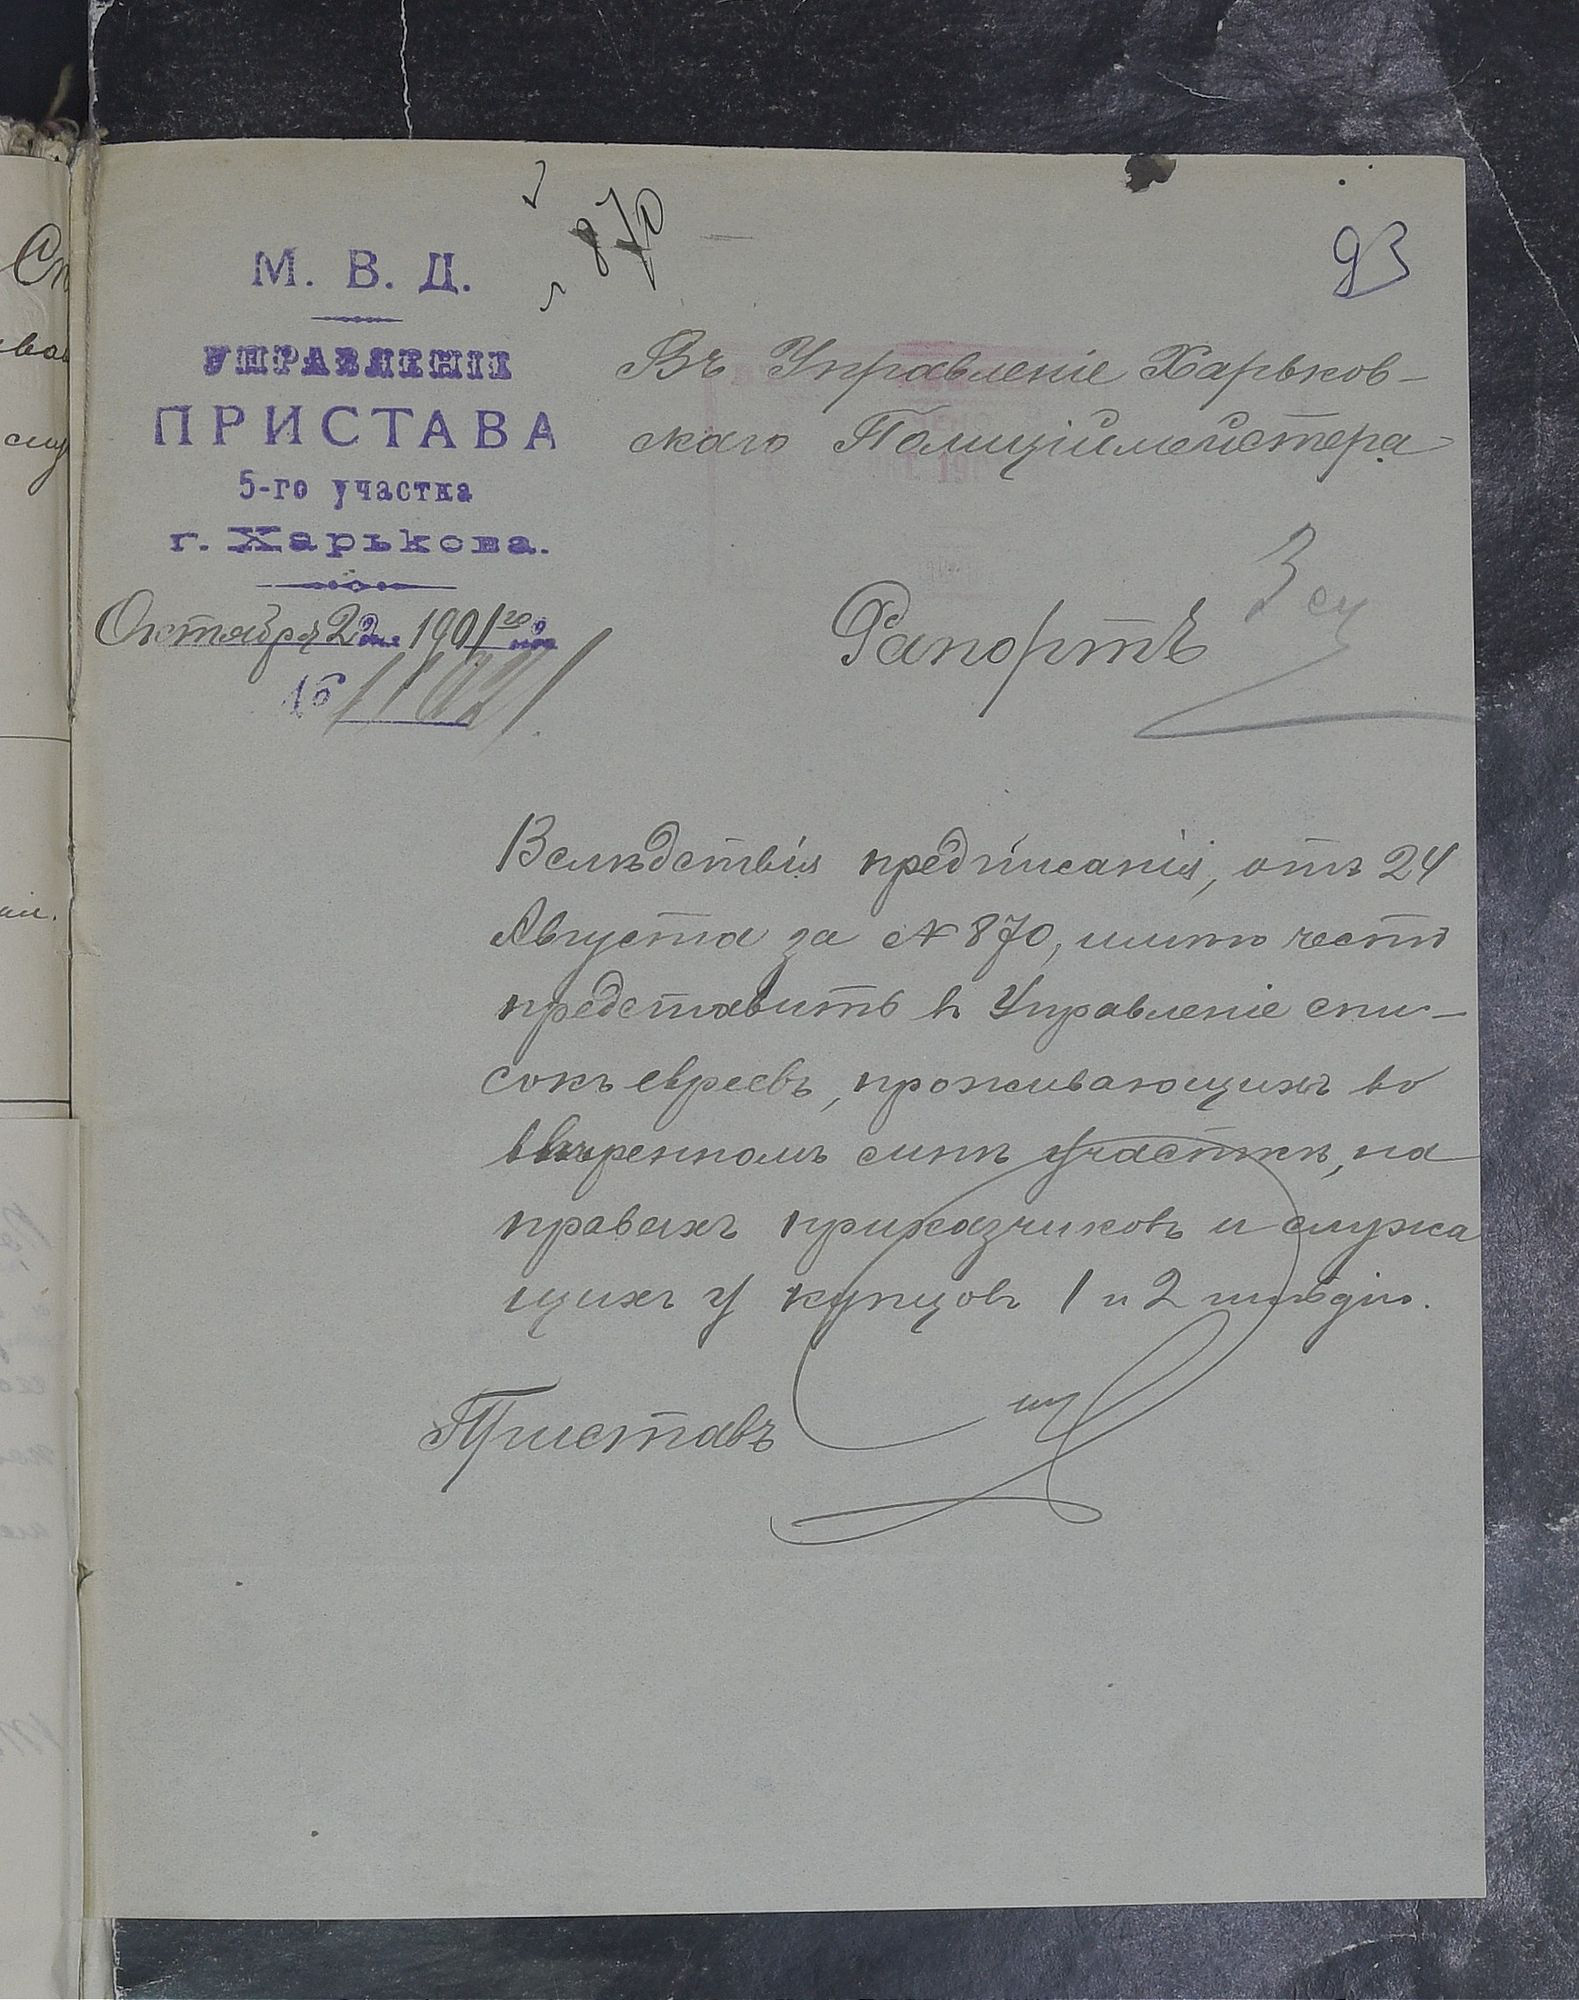 870
93
М. В. Д.
УПРАВЛЕНІЕ
ПРИСТАВА
5-го участка
г. Харькова.
Октября 2 дня 1901 го года
№ 11021
Въ Управленіе Харьков-
скаго Полиціймейстера
Рапортъ
Вслѣдствія предписанія, отъ 24
Августа за № 870, имѣю честь
представить въ Управленіе спи-
сокъ евреевъ, проживающихъ во
ввѣренномъ мнѣ участкѣ, на
правахъ приказчиковъ и служа
щихъ у купцовъ 1 и 2 гильдіи.
Приставъ